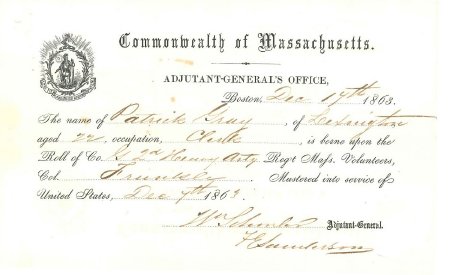 Commonwealth of Massachusetts.
ADJUTANT-GENERAL'S OFFICE,
Boston, Dec 17th 1863.
The name of Patrick Gray, of Lexington
aged 22, occupation, Clerk is borne upon the
Roll of Co. G 2d Heavy Arty Reg't Mass. Volunteers,
Col. Frankle. Mustered into service of
United States, Dec 7th 1863.
Wm Schouler Adjutant-General.